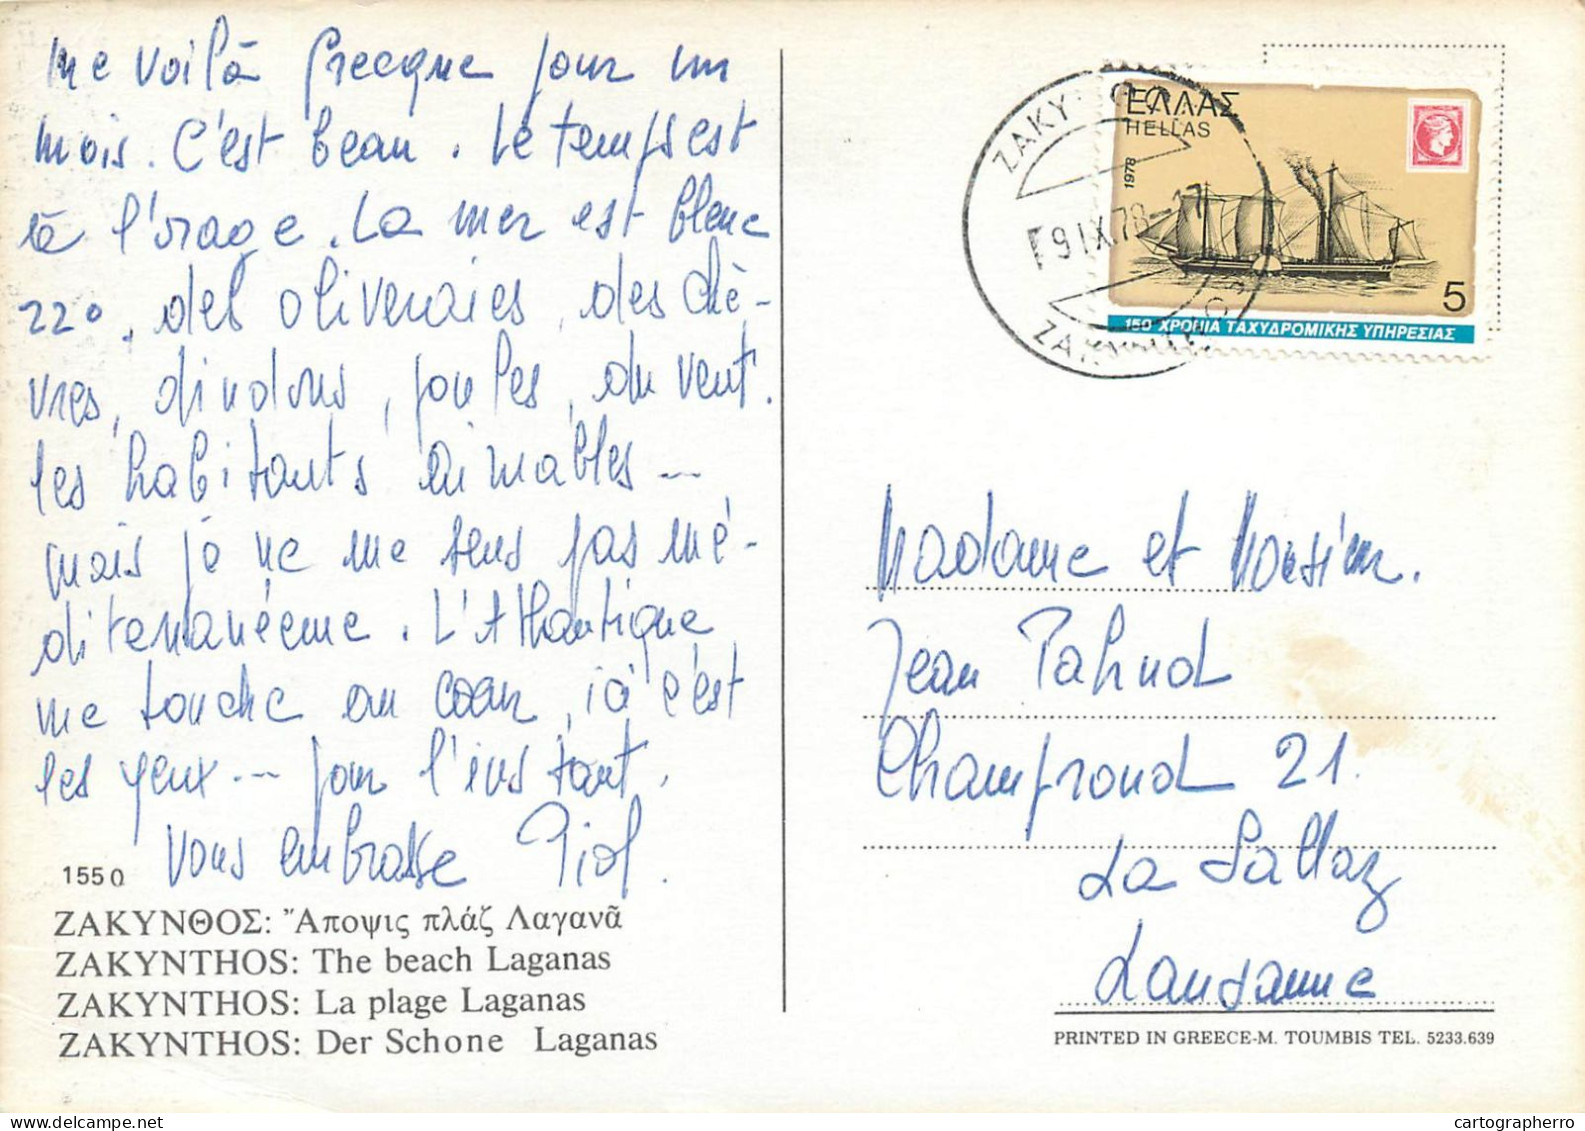 me voilà Grecque pour un
mois. C'est beau. Le temps est
à l'orage. La mer est bleue
22°, des oliveraies, des chè-
vres, dindons, poules, du vent.
les habitants aimables ...
mais je ne me sens pas mé-
diterranéenne. L'Atlantique
me touche au coeur, ici c'est
les yeux ... pour l'instant.
Vous embrasse
1550
ΖΑΚΥΝΘΟΣ: Ἄποψις πλάζ Λαγανᾶ
ZAKYNTHOS: The beach Laganas
ZAKYNTHOS: La plage Laganas
ZAKYNTHOS: Der Schone Laganas
ΕΛΛΑΣ
HELLAS
1978
5
150 ΧΡΟΝΙΑ ΤΑΧΥΔΡΟΜΙΚΗΣ ΥΠΗΡΕΣΙΑΣ
9 IX 78-17
Madame et Monsieur.
Jean Pahud
Champrond 21.
La Sallaz
Lausanne
PRINTED IN GREECE-M. TOUMBIS TEL. 5233.639
cartographerro